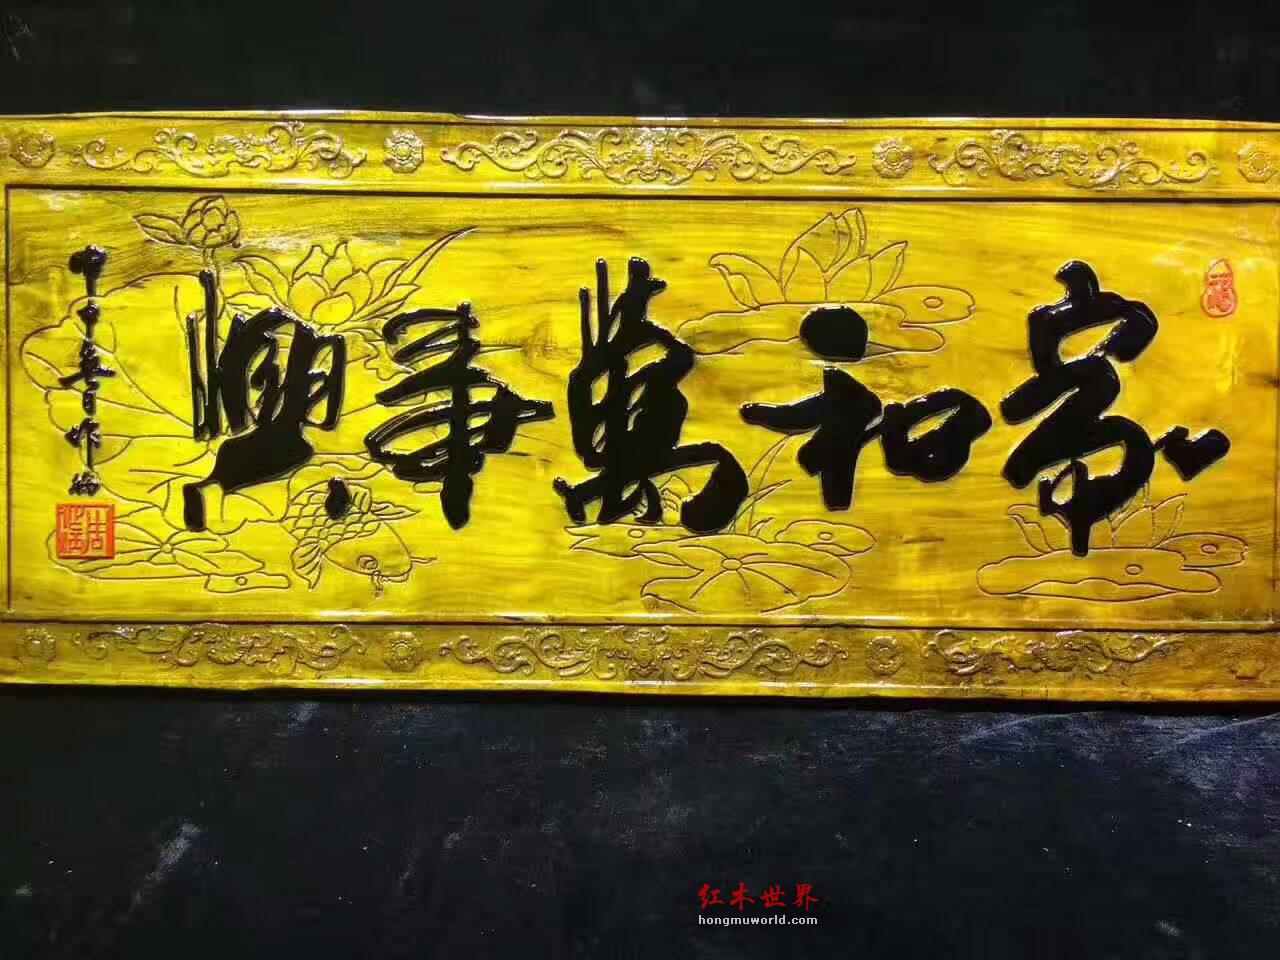 家和萬事興
红木世界
hongmuworld.com